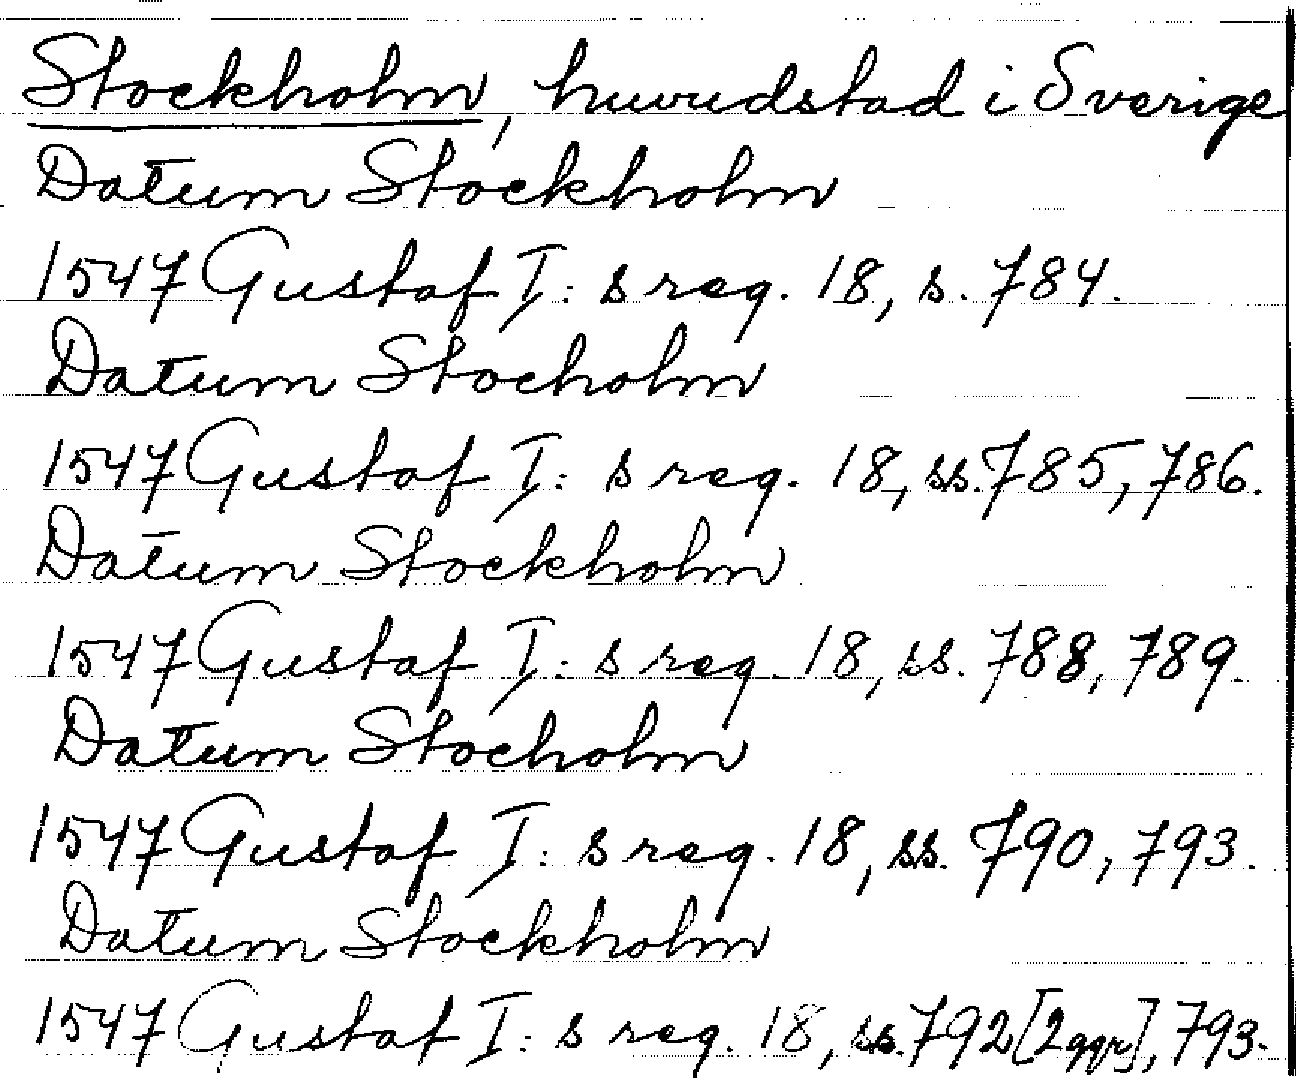 Stockholm, huvudstad i Sverige
Datum Stockholm
1547 Gustaf I: s reg. 18, s. 784.
Datum Stocholm
1547 Gustaf I: s reg. 18, ss. 785, 786.
Datum Stockholm
1547 Gustaf I: s reg. 18, ss. 788, 789.
Datum Stocholm
1547 Gustaf I: s reg. 18, ss. 790, 793.
Datum Stockholm
1547 Gustaf I: s reg. 18, ss. 792 [2 ggr], 793.